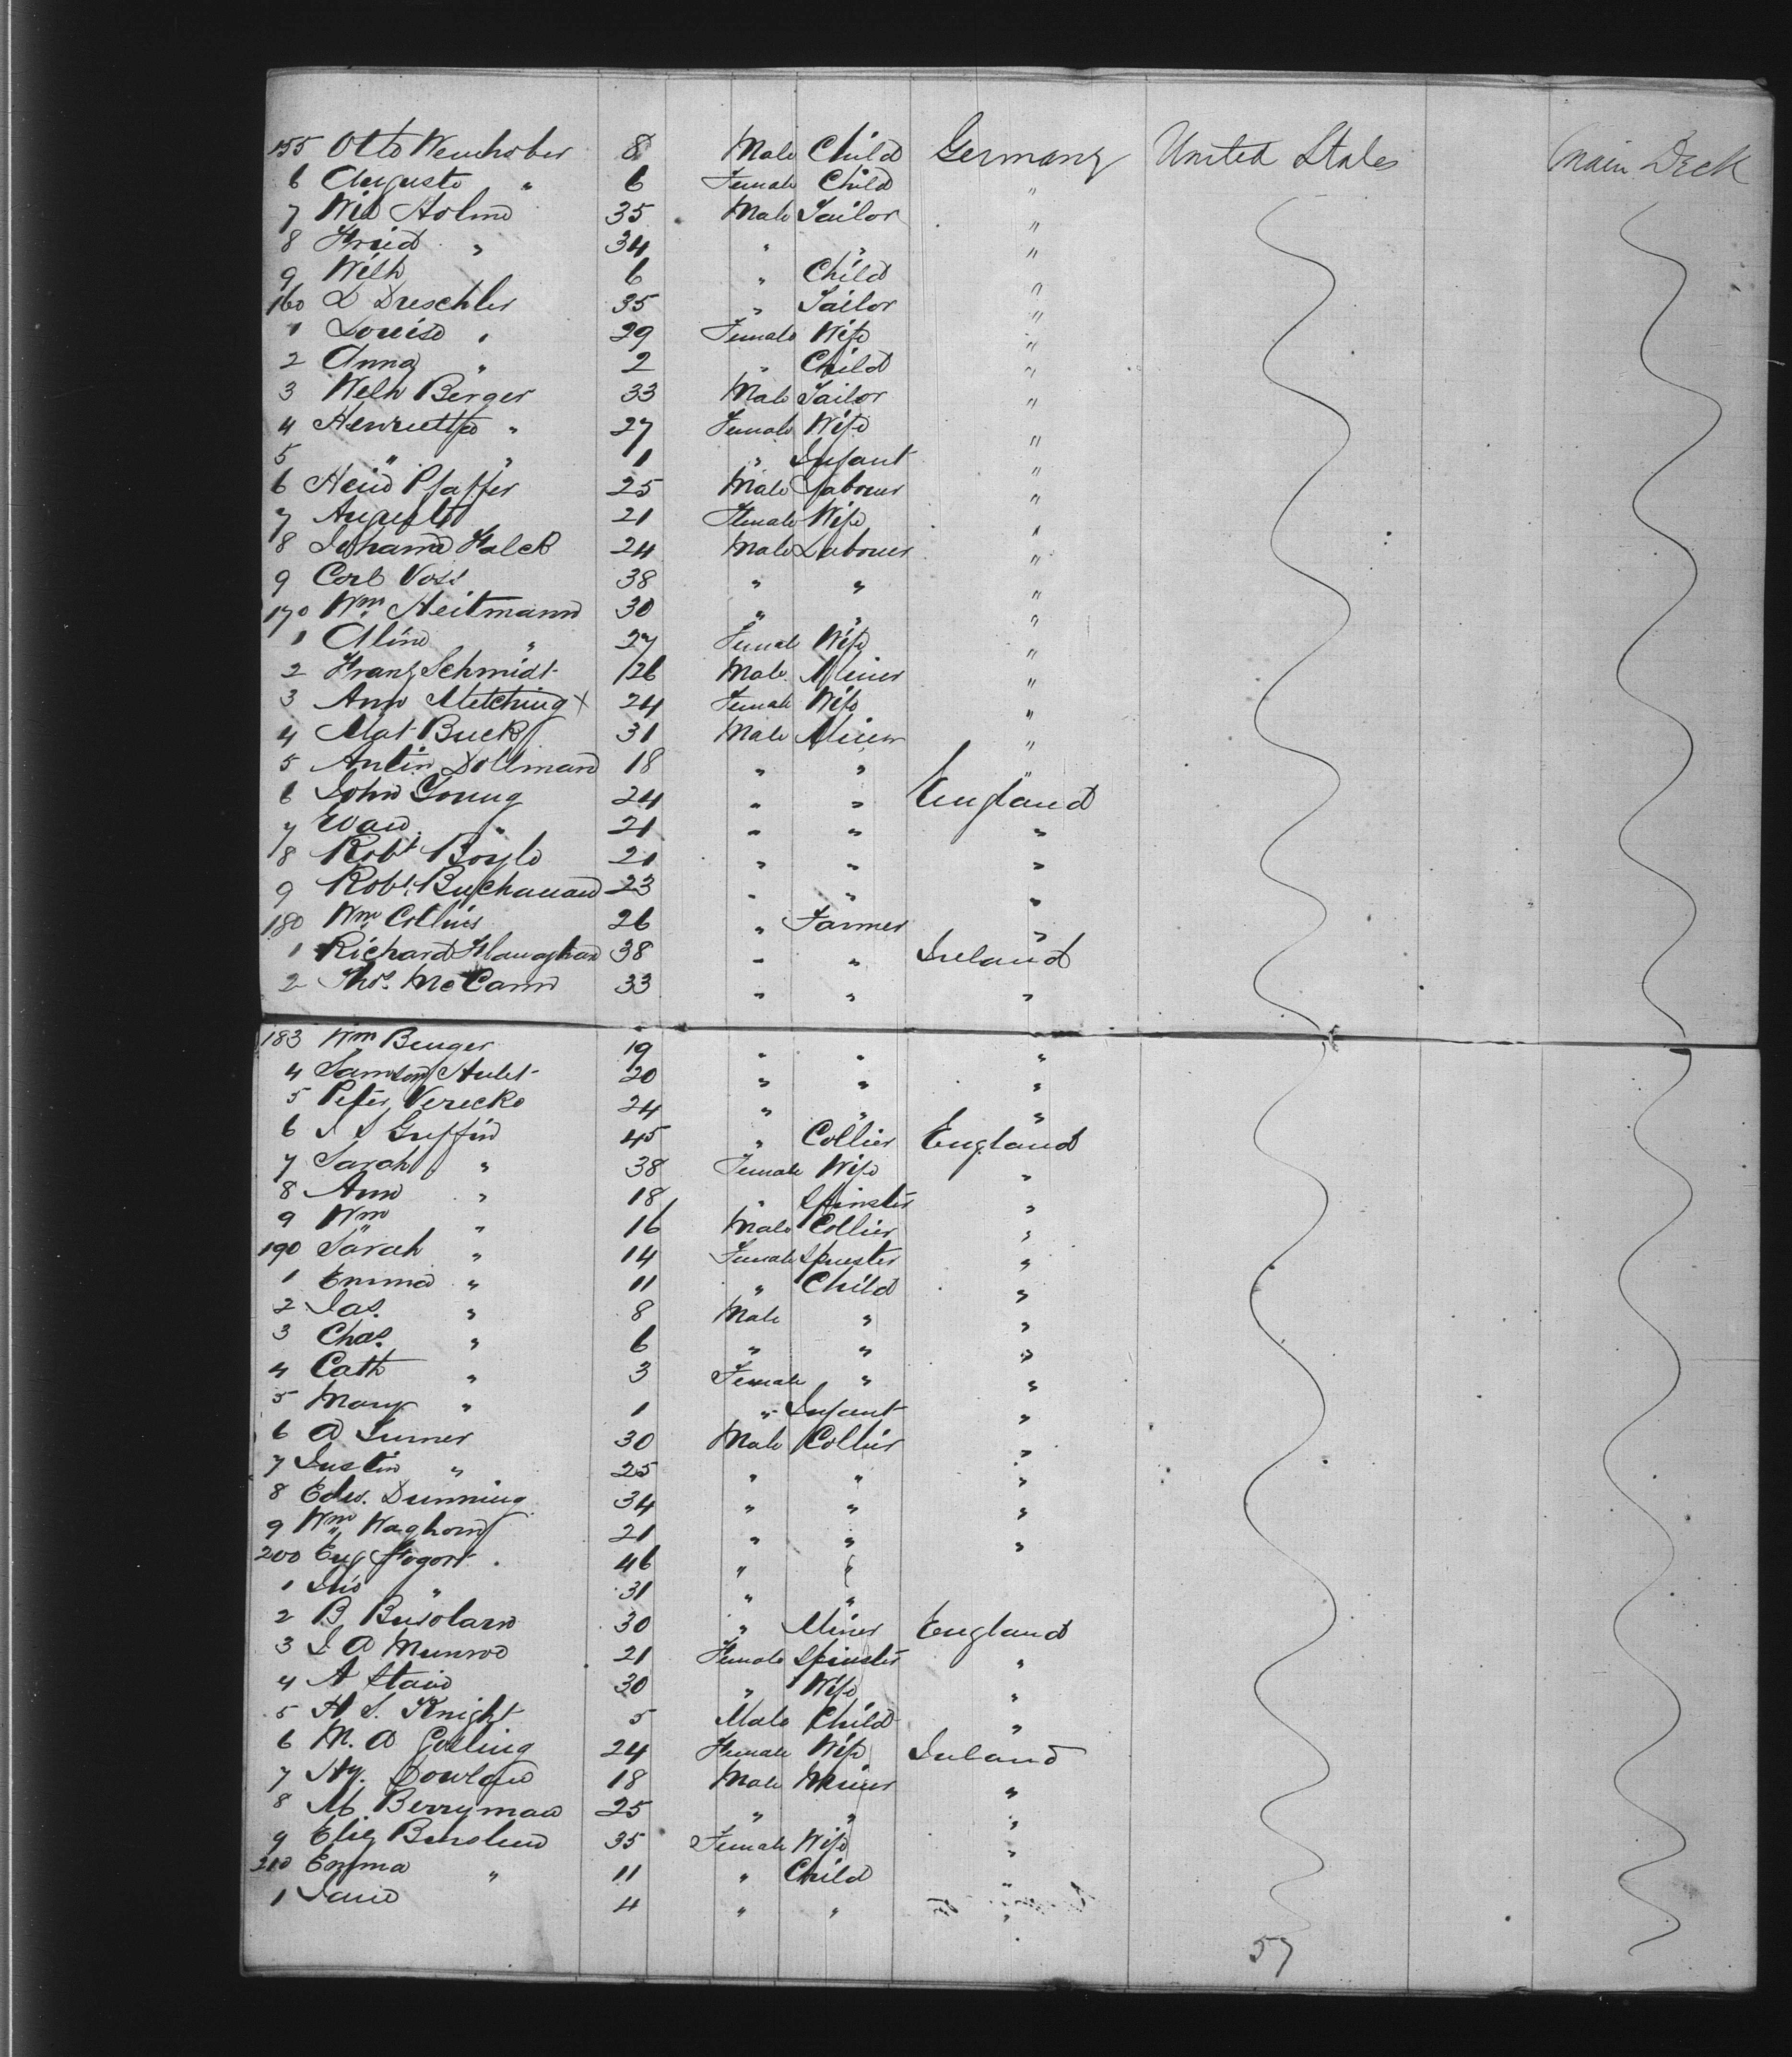 155 Otto Wenhober 8 Male Child Germany United States Main Deck
6 Auguste " 6 Female Child "
7 Wil Holms 35 Male Tailor "
8 Fried " 34 " " "
9 Wilh 6 " Child "
160 D Dreschler 35 " Tailor "
1 Louise " 29 Female Wife "
2 Anna " 2 " Child "
3 Welh Berger 33 Male Tailor "
4 Henrietta " 27 Female Wife "
5 " " 1 " Infant "
6 Heid Pfaffer 25 Male Labourer "
7 August 21 Female Wife "
8 Johann Falck 24 Male Labourer "
9 Carl Voss 38 " " "
170 Wm Heitmann 30 " " "
1 Mine " 27 Female Wife "
2 Franz Schmidt 26 Male Miner "
3 Ann Metching x 24 Female Wife "
4 Mat Buck 31 Male Miner "
5 Antin Dollman 18 " " "
6 John Young 24 " " England
7 Ewan " 21 " " "
8 Robt Boyle 21 " " "
9 Robt Buchanan 23 " " "
180 Wm Collins 26 " Farmer "
1 Richard Flanaghan 38 " " Ireland
2 Thos. McCann 33 " " "
183 Wm Benger 19 " " "
4 Samson Hulet 20 " " "
5 Peter Verecke 24 " " "
6 J S Griffin 45 " Collier England
7 Sarah " 38 Female Wife "
8 Ann " 18 " Spinster "
9 Wm " 16 Male Collier "
190 Sarah " 14 Female Spinster "
1 Emma " 11 " Child "
2 Jas. " 8 Male " "
3 Chas. " 6 " " "
4 Cath " 3 Female " "
5 Mary " 1 " Infant "
6 A Turner 30 Male Collier "
7 Justin " 25 " " "
8 Edw. Dunning 34 " " "
9 Wm Waghorn 21 " " "
200 Eug Hogort 46 " "
1 Jno " 31 " "
2 B 30 " Miner England
3 J A Munroe 21 Female Spinster "
4 A Stain 30 " Wife "
5 H S. Knight 5 Male Child "
6 M. A Colling 24 Female Wife Ireland
7 Hy. Dowland 18 Male Miner "
8 M. Berryman 25 " " "
9 Eliz 35 Female Wife "
210 Emma " 11 " Child "
1 Jane 4 " " "
57